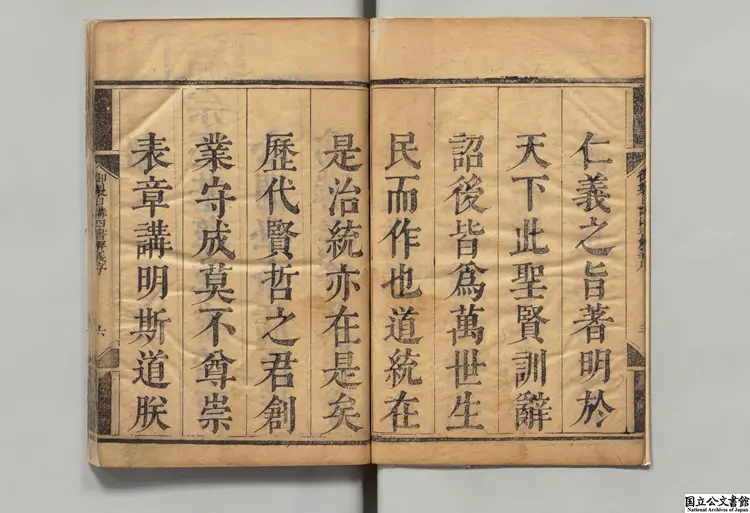 仁義之旨著明於
天下此聖賢訓辭
詔後皆爲萬世生
民而作也道統在
是治統亦在是矣
歷代賢哲之君創
業守成莫不尊崇
表章講明斯道朕
御製日講四書解義序
六
国立公文書館
National Archives of Japan